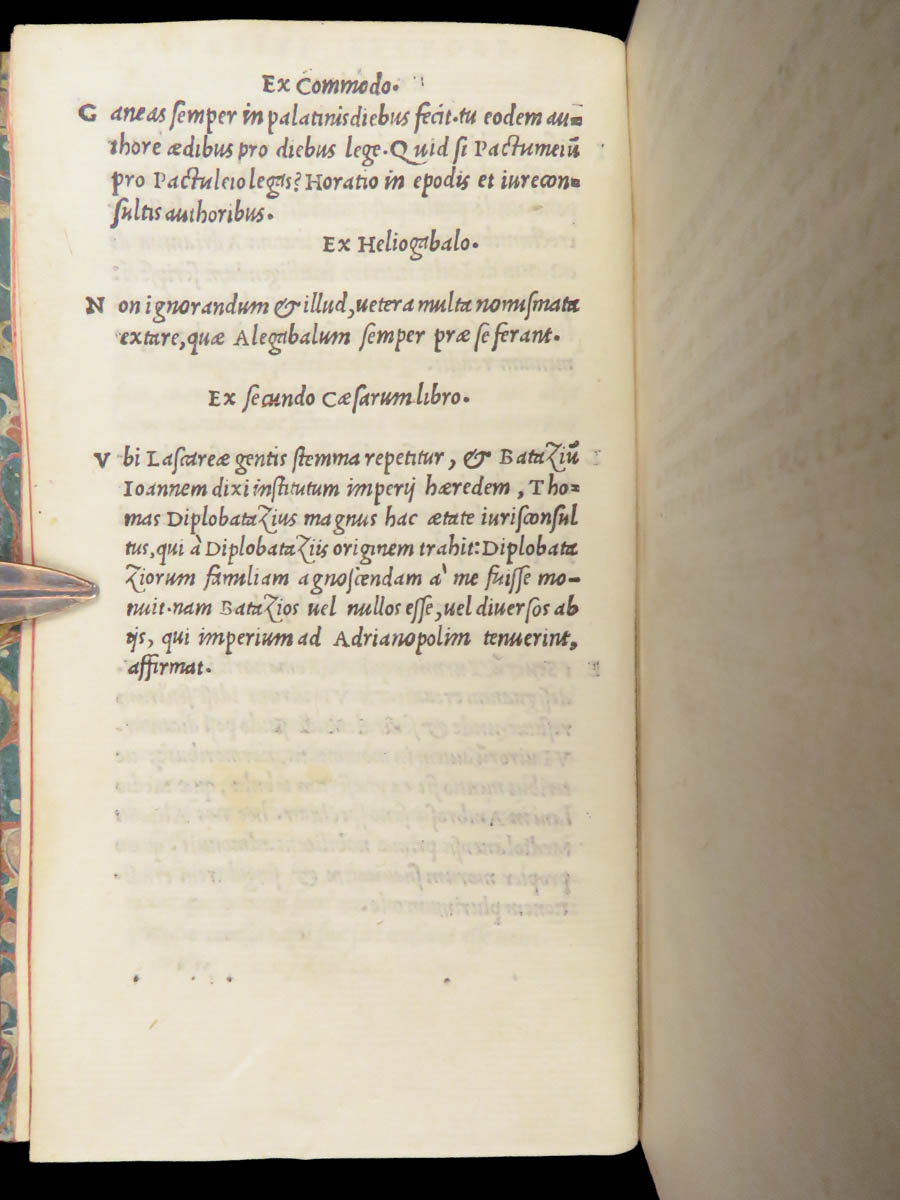 Ex Commodo.
G aneas semper in palatinis diebus fecit. tu eodem au=
thore ædibus pro diebus lege. Quid si Pactumeiū
pro Pactuleio legas? Horatio in epodis et iurecon=
sultis authoribus.
Ex Heliogabalo.
N on ignorandum & illud, uetera multa nomismata
extare, quæ Alegabalum semper præ se ferant.
Ex secundo Cæsarum libro.
V bi Lascareæ gentis stemma repetitur, & Bataziū
Ioannem dixi institutum imperij hæredem, Tho=
mas Diplobatazius magnus hac ætate iurisconsul
tus, qui à Diplobataziis originem trahit: Diplobata
ziorum familiam agnoscendam à me fuisse mo-
nuit. nam Batazios uel nullos esse, uel diuersos ab
ijs, qui imperium ad Adrianopolim tenuerint,
affirmat.